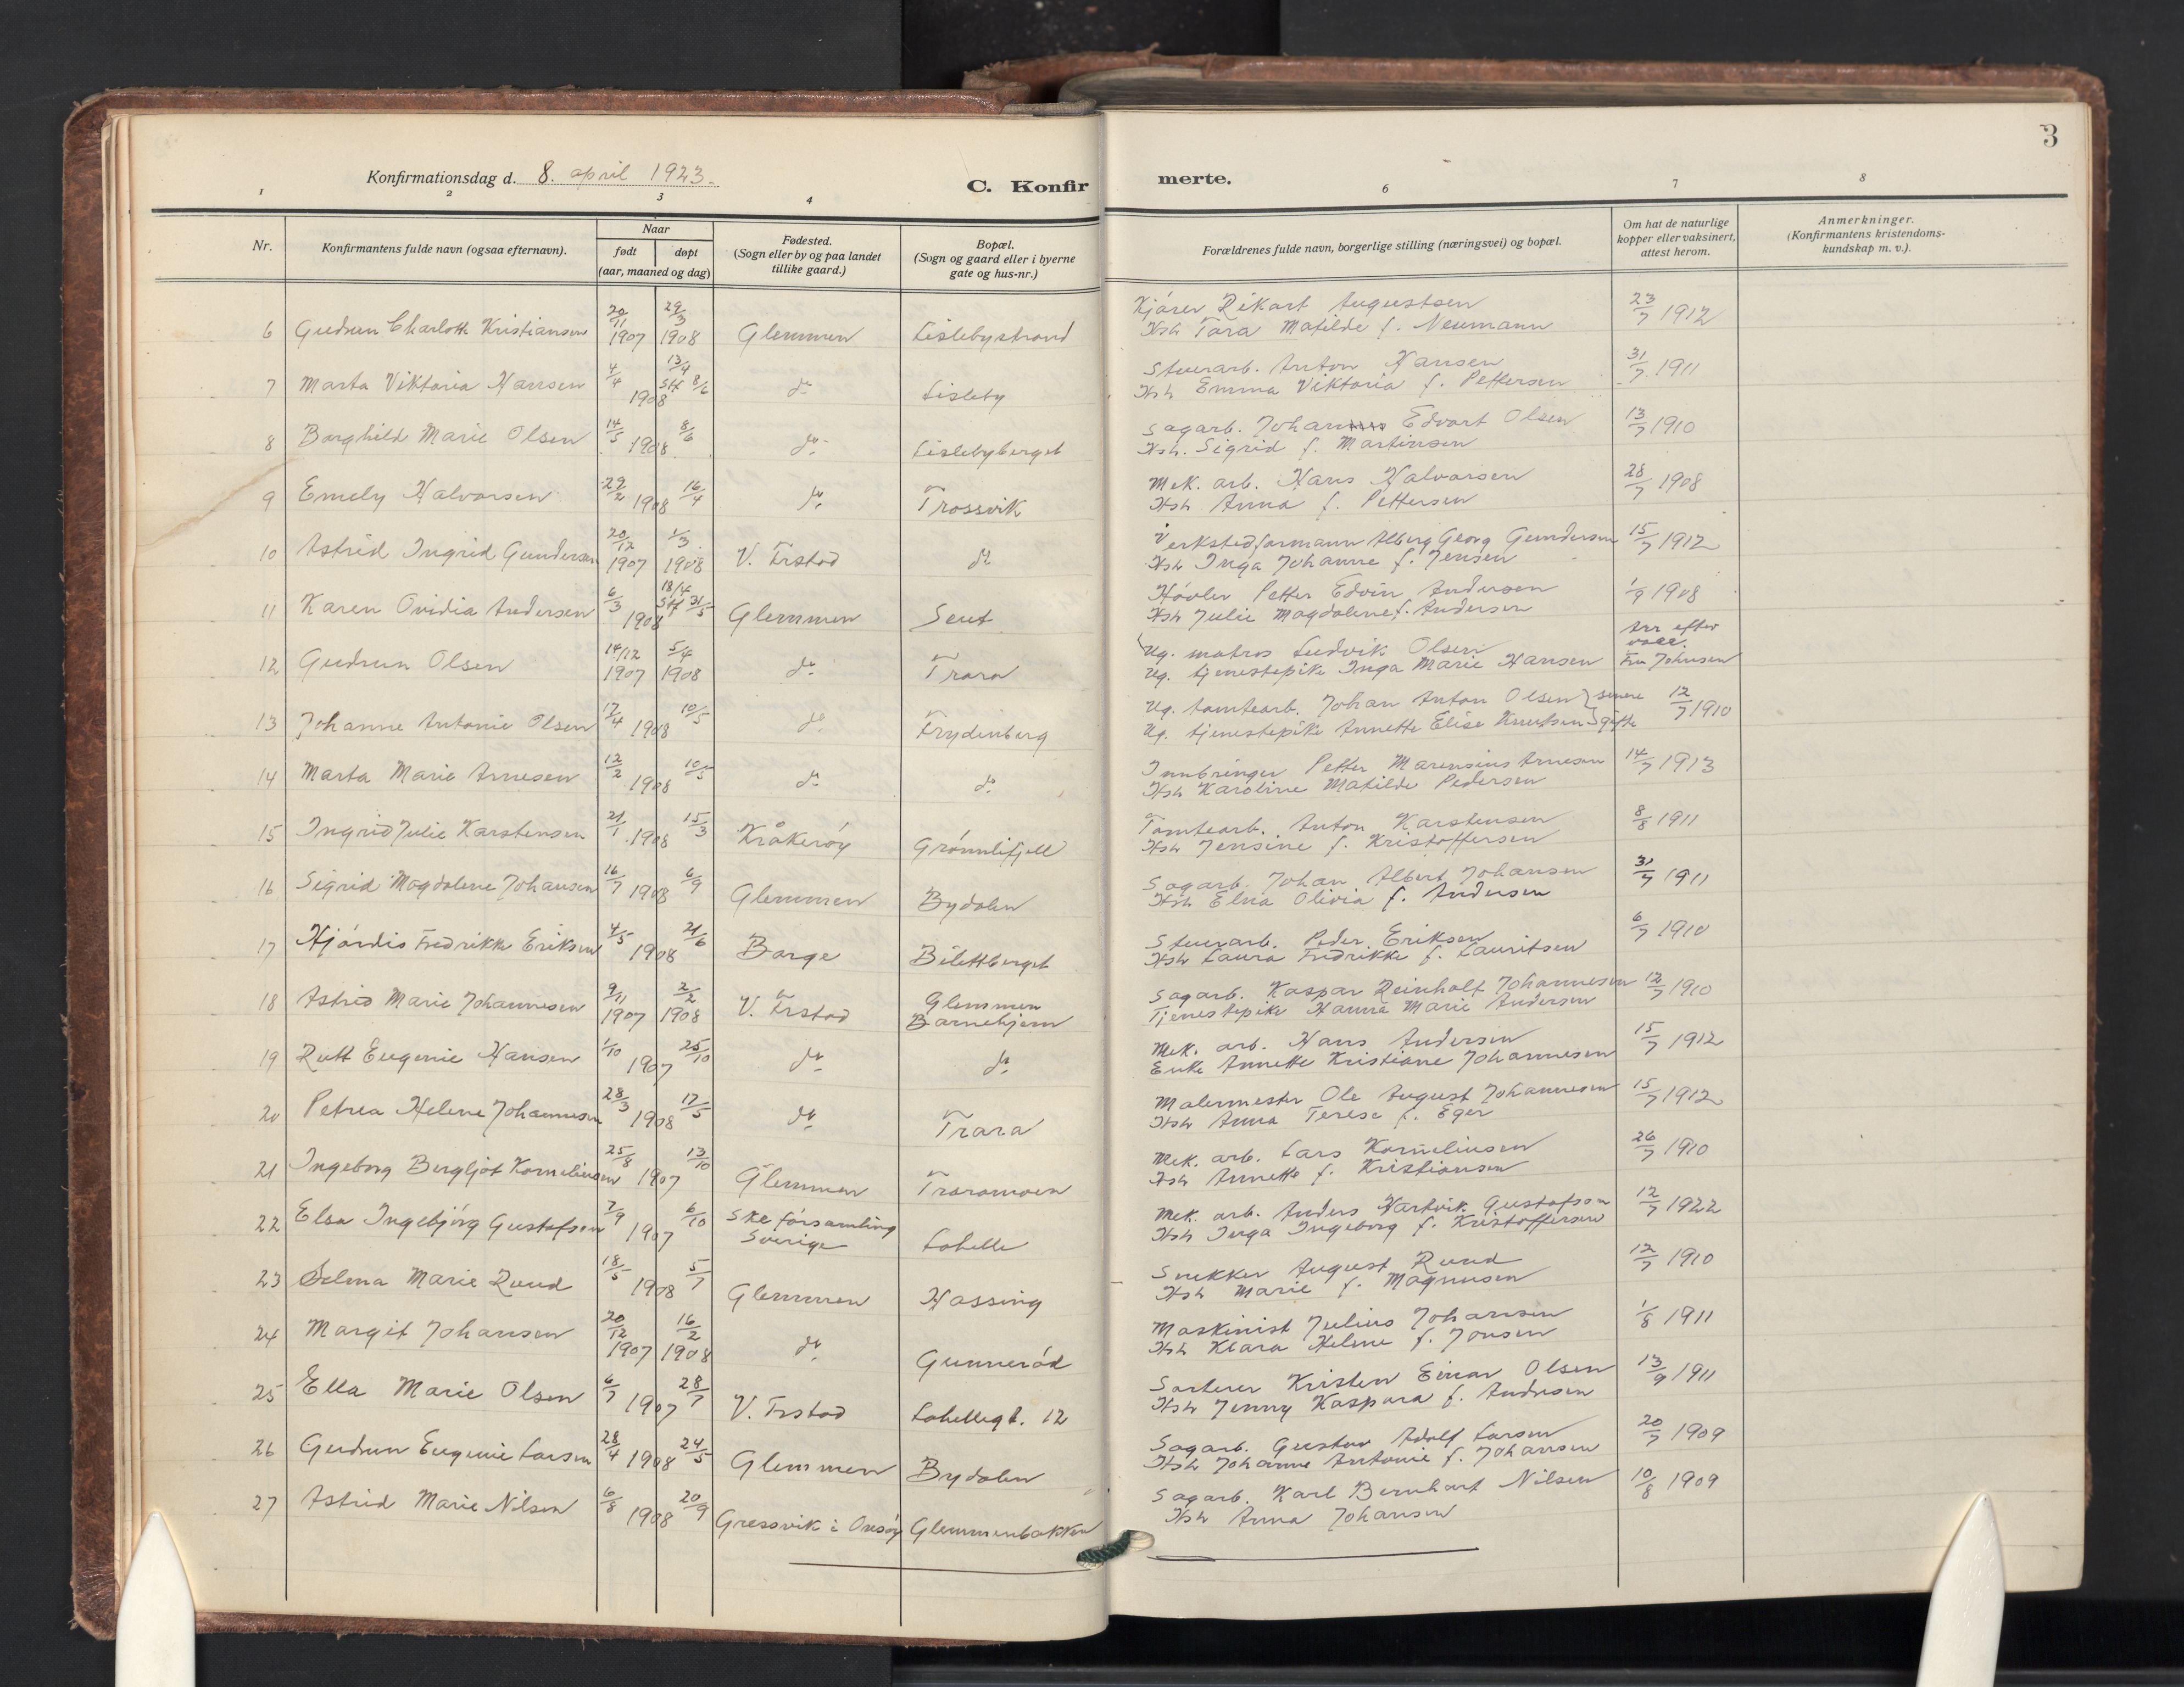 3
Konfirmationsdag d. 8. april 1923.
C. Konfirmerte.
1 2 3 4 6 7 8
Nr.
Konfirmantens fulde navn (ogsaa efternavn).
Naar
født døpt
(aar, maaned og dag)
Fødested.
(Sogn eller by og paa landet
tillike gaard.)
Bopæl.
(Sogn og gaard eller i byerne
gate og hus-nr.)
Forældrenes fulde navn, borgerlige stilling (næringsvei) og bopæl.
Om hat de naturlige
kopper eller vaksinert,
attest herom.
Anmerkninger.
(Konfirmantens kristendoms-
kundskap m. v.).
6 Gudrun Charlotte Kristiansen 20/11 1907 29/3 1908 Glemmen Lislebystrand
Kjører Rikart Augustsen
Hsh Tora Matilde f. Neumann 23/7 1912
7 Marta Viktoria Hansen 4/4 1908 13/4 Stf 8/6 do Lisleby
Stuerarb. Anton Hansen
Hsh Emma Viktoria f. Pettersen 31/7 1911
8 Borghild Marie Olsen 14/5 1908 8/6 do Lislebyberget
Sagarb. Johan Edvart Olsen
Hsh. Sigrid f. Martinsen 13/7 1910
9 Emely Halvorsen 29/2 1908 16/4 do Trossvik
Mek. arb. Hans Halvorsen
Hsh Anna f. Pettersen 28/7 1908
10 Astrid Ingrid Gundersen 20/12 1907 1/3 1908 V. Frstad do
Verkstedformann Alberg Georg Gundersen
Hsh Inga Johanne f. Jensen 15/7 1912
11 Karen Ovidia Andersen 6/3 1908 18/4 Stf 31/5 Glemmen Seut
Høvler Petter Edvin Andersen
Hsh Julie Magdalene f. Andersen 1/9 1908
12 Gudrun Olsen 14/12 1907 5/4 1908 do Trara
Ug. matros Ludvik Olsen
Ug. tjenestepike Inga Marie Hansen
Arr efter
vacc.
Fru Johnsen
13 Johanne Antonie Olsen 17/4 1908 10/5 do Frydenberg
Ug. tomtearb. Johan Anton Olsen } senere
Ug. tjenestepike Annette Elise Knutsen } gifte 12/7 1910
14 Marta Marie Arnesen 12/2 1908 10/5 do do
Innbringer Petter Marensius Arnesen
Hsh Karoline Matilde Pedersen 14/7 1913
15 Ingrid Julie Karstensen 21/1 1908 15/3 Kråkerøy Grønnlifjell
Tomtearb. Anton Karstensen
Hsh Jensine f. Kristoffersen 8/8 1911
16 Sigrid Magdalene Johansen 16/7 1908 6/9 Glemmen Bydalen
Sagarb. Johan Albert Johansen
Hsh Elna Olivia f. Andersen 31/7 1911
17 Hjørdis Fredrikke Eriksen 4/5 1908 21/6 Borge Bilettberget
Stuerarb. Peder Eriksen
Hsh Laura Fredrikke f. Lauritsen 6/7 1910
18 Astrid Marie Johannesen 9/11 1907 2/2 1908 V. Frstad Glemmen
Barnehjem
Sagarb. Kaspar Reinholt Johannesen
Tjenestepike Hanna Marie Andersen 12/7 1910
19 Rutt Eugenie Hansen 1/10 1907 25/10 do do
Mek. arb. Hans Andersen
Enke Annette Kristiane Johannesen 15/7 1912
20 Petrea Helene Johannesen 28/3 1908 17/5 do Trara
Malermester Ole August Johannesen
Hsh Anna Terese f. Eger 15/7 1912
21 Ingeborg Bergljot Korneliusen 25/8 1907 13/10 Glemmen Traramoen
Mek. arb. Lars Korneliusen
Hsh Annette f. Kristiansen 26/7 1910
22 Elsa Ingebjørg Gustafson 7/9 1907 6/10 Ske församling
Sverige Lahelle
Mek. arb. Anders Hartvik Gustafson
Hsh Inga Ingeborg f. Kristoffersen 12/7 1922
23 Selma Marie Ruud 18/5 1908 5/7 Glemmen Hassing
Snekker August Ruud
Hsh Marie f. Magnusen 12/7 1910
24 Margit Johansen 20/12 1907 16/2 1908 do Gunnerød
Maskinist Julius Johansen
Hsh Klara Helene f. Jonsen 1/8 1911
25 Ella Marie Olsen 6/7 1907 28/7 V. Frstad Lahellegt. 12
Sorterer Kristen Einar Olsen
Hsh Jenny Kaspara f. Andresen 13/9 1911
26 Gudrun Eugenie Larsen 28/4 1908 24/5 Glemmen Bydalen
Sagarb. Gustav Adolf Larsen
Hsh Johanne Antonie f. Johansen 20/7 1909
27 Astrid Marie Nilsen 6/8 1908 20/9 Gressvik i Onsøy Glemmenbakken
Sagarb. Karl Bernhart Nilsen
Hsh Anna Johansen 10/8 1909